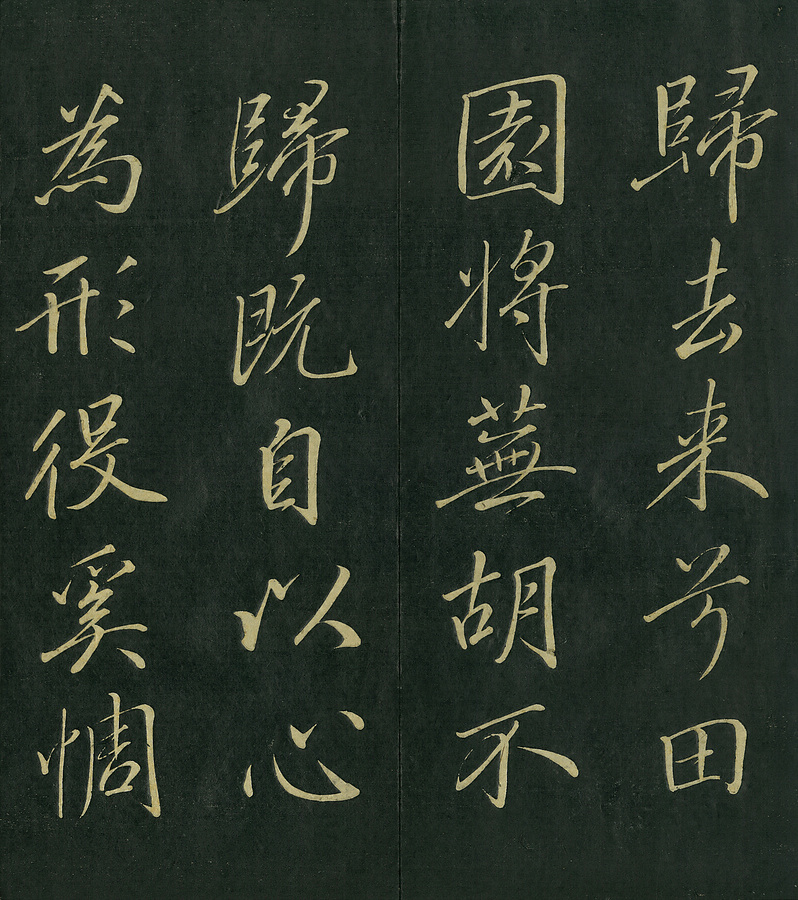 歸去来兮田
園将蕪胡不
歸既自以心
為形役奚惆